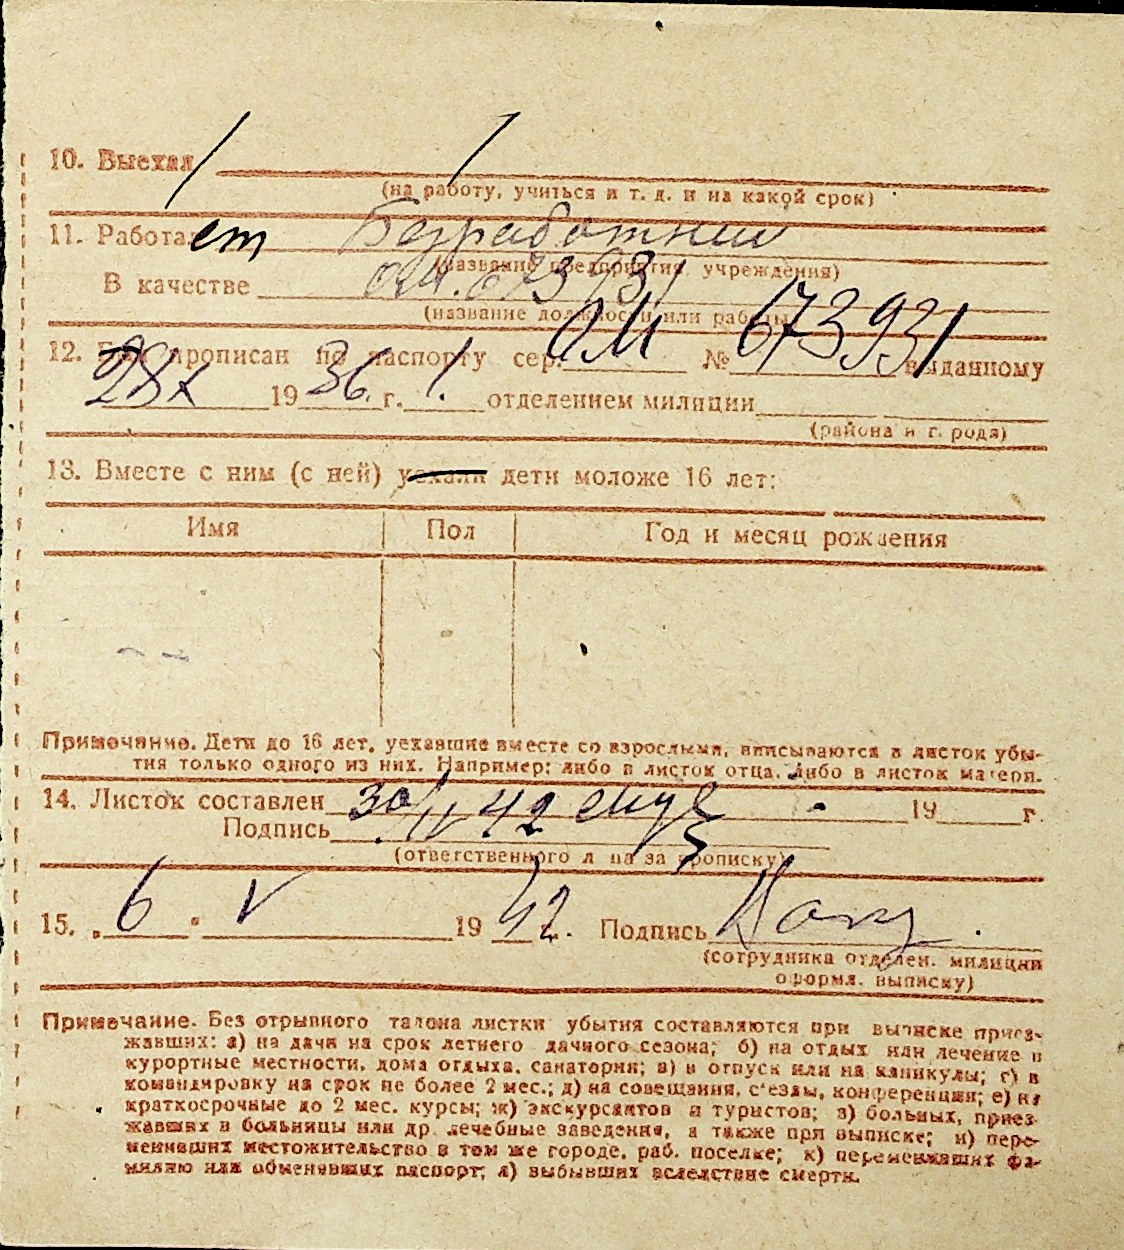 10. Выехал
(на работу, учиться и т. д. и на какой срок)
11. Работает Безработный
(название предприятия, учреждения)
В качестве ОМ. 673931
(название должности или работы)
12. Был прописан по паспорту сер. ОМ № 673931 выданному
28/X 1936. г. 1. отделением милиции
(района и г. рода)
13. Вместе с ним (с ней) уехали дети моложе 16 лет:
Имя Пол Год и месяц рождения
Примечание. Дети до 16 лет, уехавшие вместе со взрослыми, вписываются в листок убы-
тия только одного из них. Например: либо в листок отца, либо в листок матери.
14. Листок составлен 30/IV 42 19 г.
Подпись
(ответственного лица за прописку)
15. „ 6 " V 1942 г. Подпись
(сотрудника отделен. милиции
оформл. выписку)
Примечание. Без отрывного талона листки убытия составляются при выписке приез-
жавших: а) на дачи на срок летнего дачного сезона; б) на отдых или лечение в
курортные местности, дома отдыха, санатории; в) в отпуск или на каникулы; г) в
командировку на срок не более 2 мес.; д) на совещания, с'езды, конференции; е) на
краткосрочные до 2 мес. курсы; ж) экскурсантов и туристов; з) больных, приез-
жавших в больницы или др. лечебные заведения, а также при выписке; и) пере-
менивших местожительство в том же городе, раб. поселке; к) переменивших фа-
милию или обменявших паспорт; л) выбывших вследствие смерти.